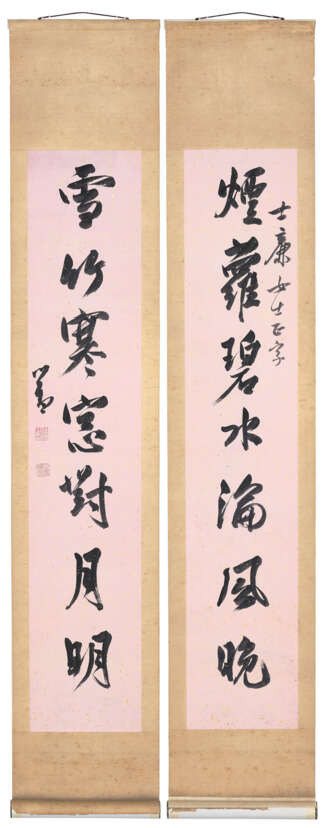 煙蘿碧水淪風晚
士廉女士正字
雪竹寒窗對月明
溥儒